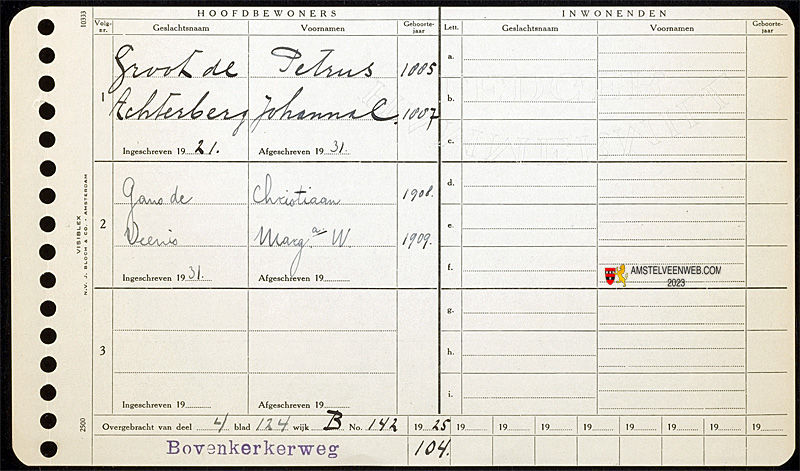 HOOFDBEWONERS INWONENDEN
Volg-nr. Geslachtsnaam Voornamen Geboorte-jaar Lett. Geslachtsnaam Voornamen Geboorte-jaar
10333
1
Groot de Petrus 1885
Achterberg Johanna C. 1887
Ingeschreven 1921. Afgeschreven 1931.
2
Gans de Christiaan 1908.
Veenis Marg.a W. 1909.
Ingeschreven 1931. Afgeschreven 19
3
Ingeschreven 19 Afgeschreven 19
a.
b.
c.
d.
e.
f.
g.
h.
i.
AMSTELVEENWEB.COM
2023
VISIBLEX
N.V. J. BLOCH & CO. - AMSTERDAM
2500
Overgebracht van deel 4 blad 124 wijk B No. 142 1925 19 19 19 19 19 19 19 19
Bovenkerkerweg 104.